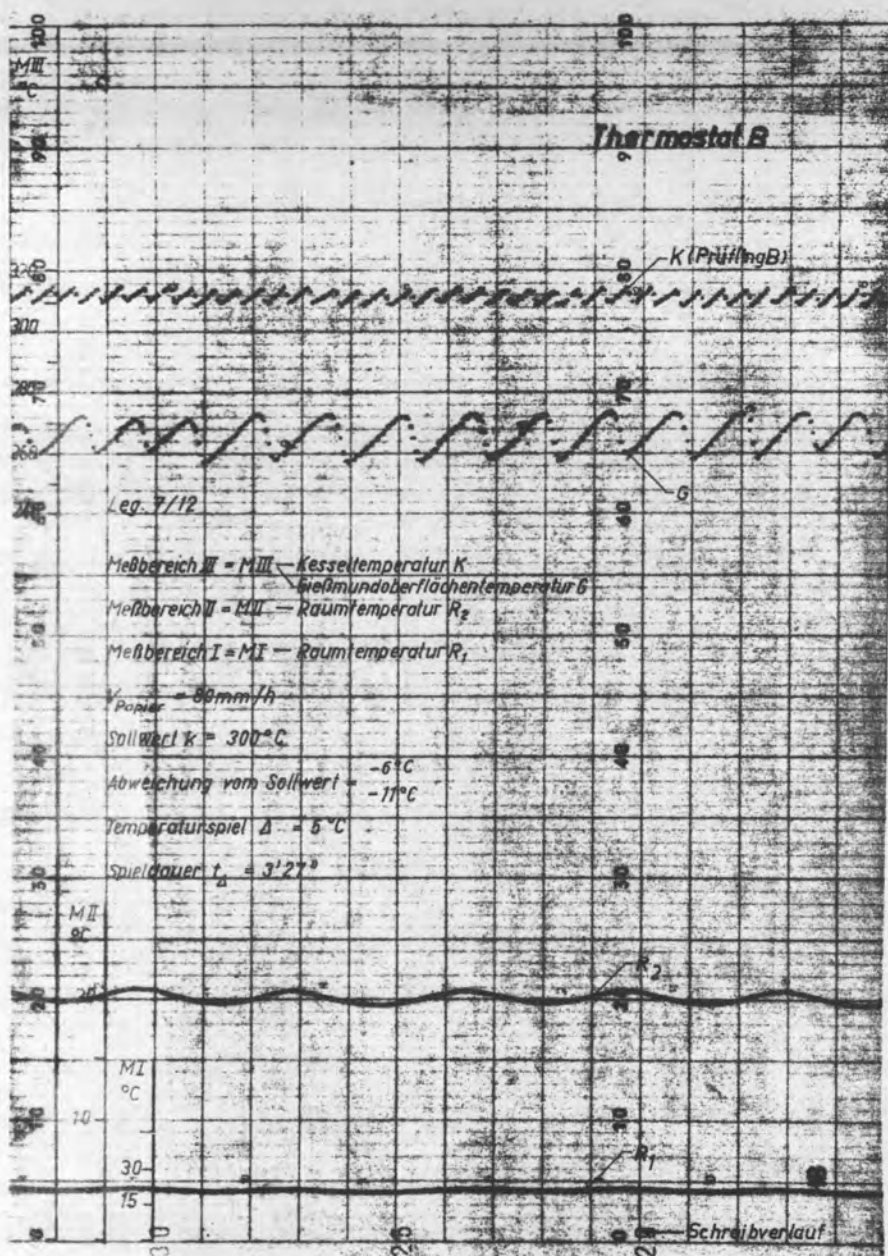 100 100
M III
°C
Thermostat B
90 9
320 80 80
K (Prüfling B)
300
280 70
268
G
Leg. 7/12
60
Meßbereich III = M III — Kesseltemperatur K
Gießmundoberflächentemperatur G
Meßbereich II = M II — Raumtemperatur R₂
50 50
Meßbereich I = M I — Raumtemperatur R₁
V Papier = 80mm/h
Sollwert k = 300°C
40 40
Abweichung vom Sollwert = -6°C
-11°C
Temperaturspiel Δ = 5°C
Spieldauer t Δ = 3'27"
30 30
M II
°C
R₂
20 20 20
M I
°C
10 10 10
30
R₁
15
0 0
Schreibverlauf